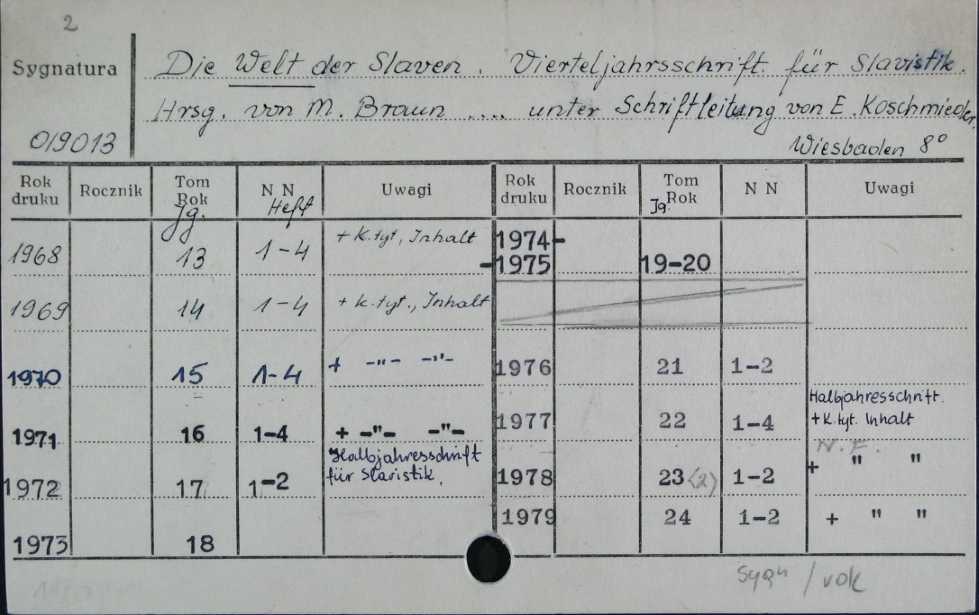 2
Sygnatura
019013
Die Welt der Slaven. Vierteljahrsschrift für Slavistik.
Hrsg. von M. Braun .... unter Schriftleitung von E. Koschmieder
Wiesbaden 8°
Rok druku Rocznik Tom Rok Jg. N N Heft Uwagi
1968 13 1-4 + K. tyt., Inhalt
1969 14 1-4 + k. tyt., Inhalt
1970 15 1-4 + -"- -"-
1971 16 1-4 + -"- -"-
1972 17 1-2 Halbjahresschrift
für Slavistik.
1973 18
Rok druku Rocznik Tom Rok Jg. N N Uwagi
1974-
-1975 19-20
1976 21 1-2
1977 22 1-4 Halbjahresschrift.
+ K. tyt. Inhalt
N.F.
1978 23 (2) 1-2 + " "
1979 24 1-2 + " "
Sygn / rok